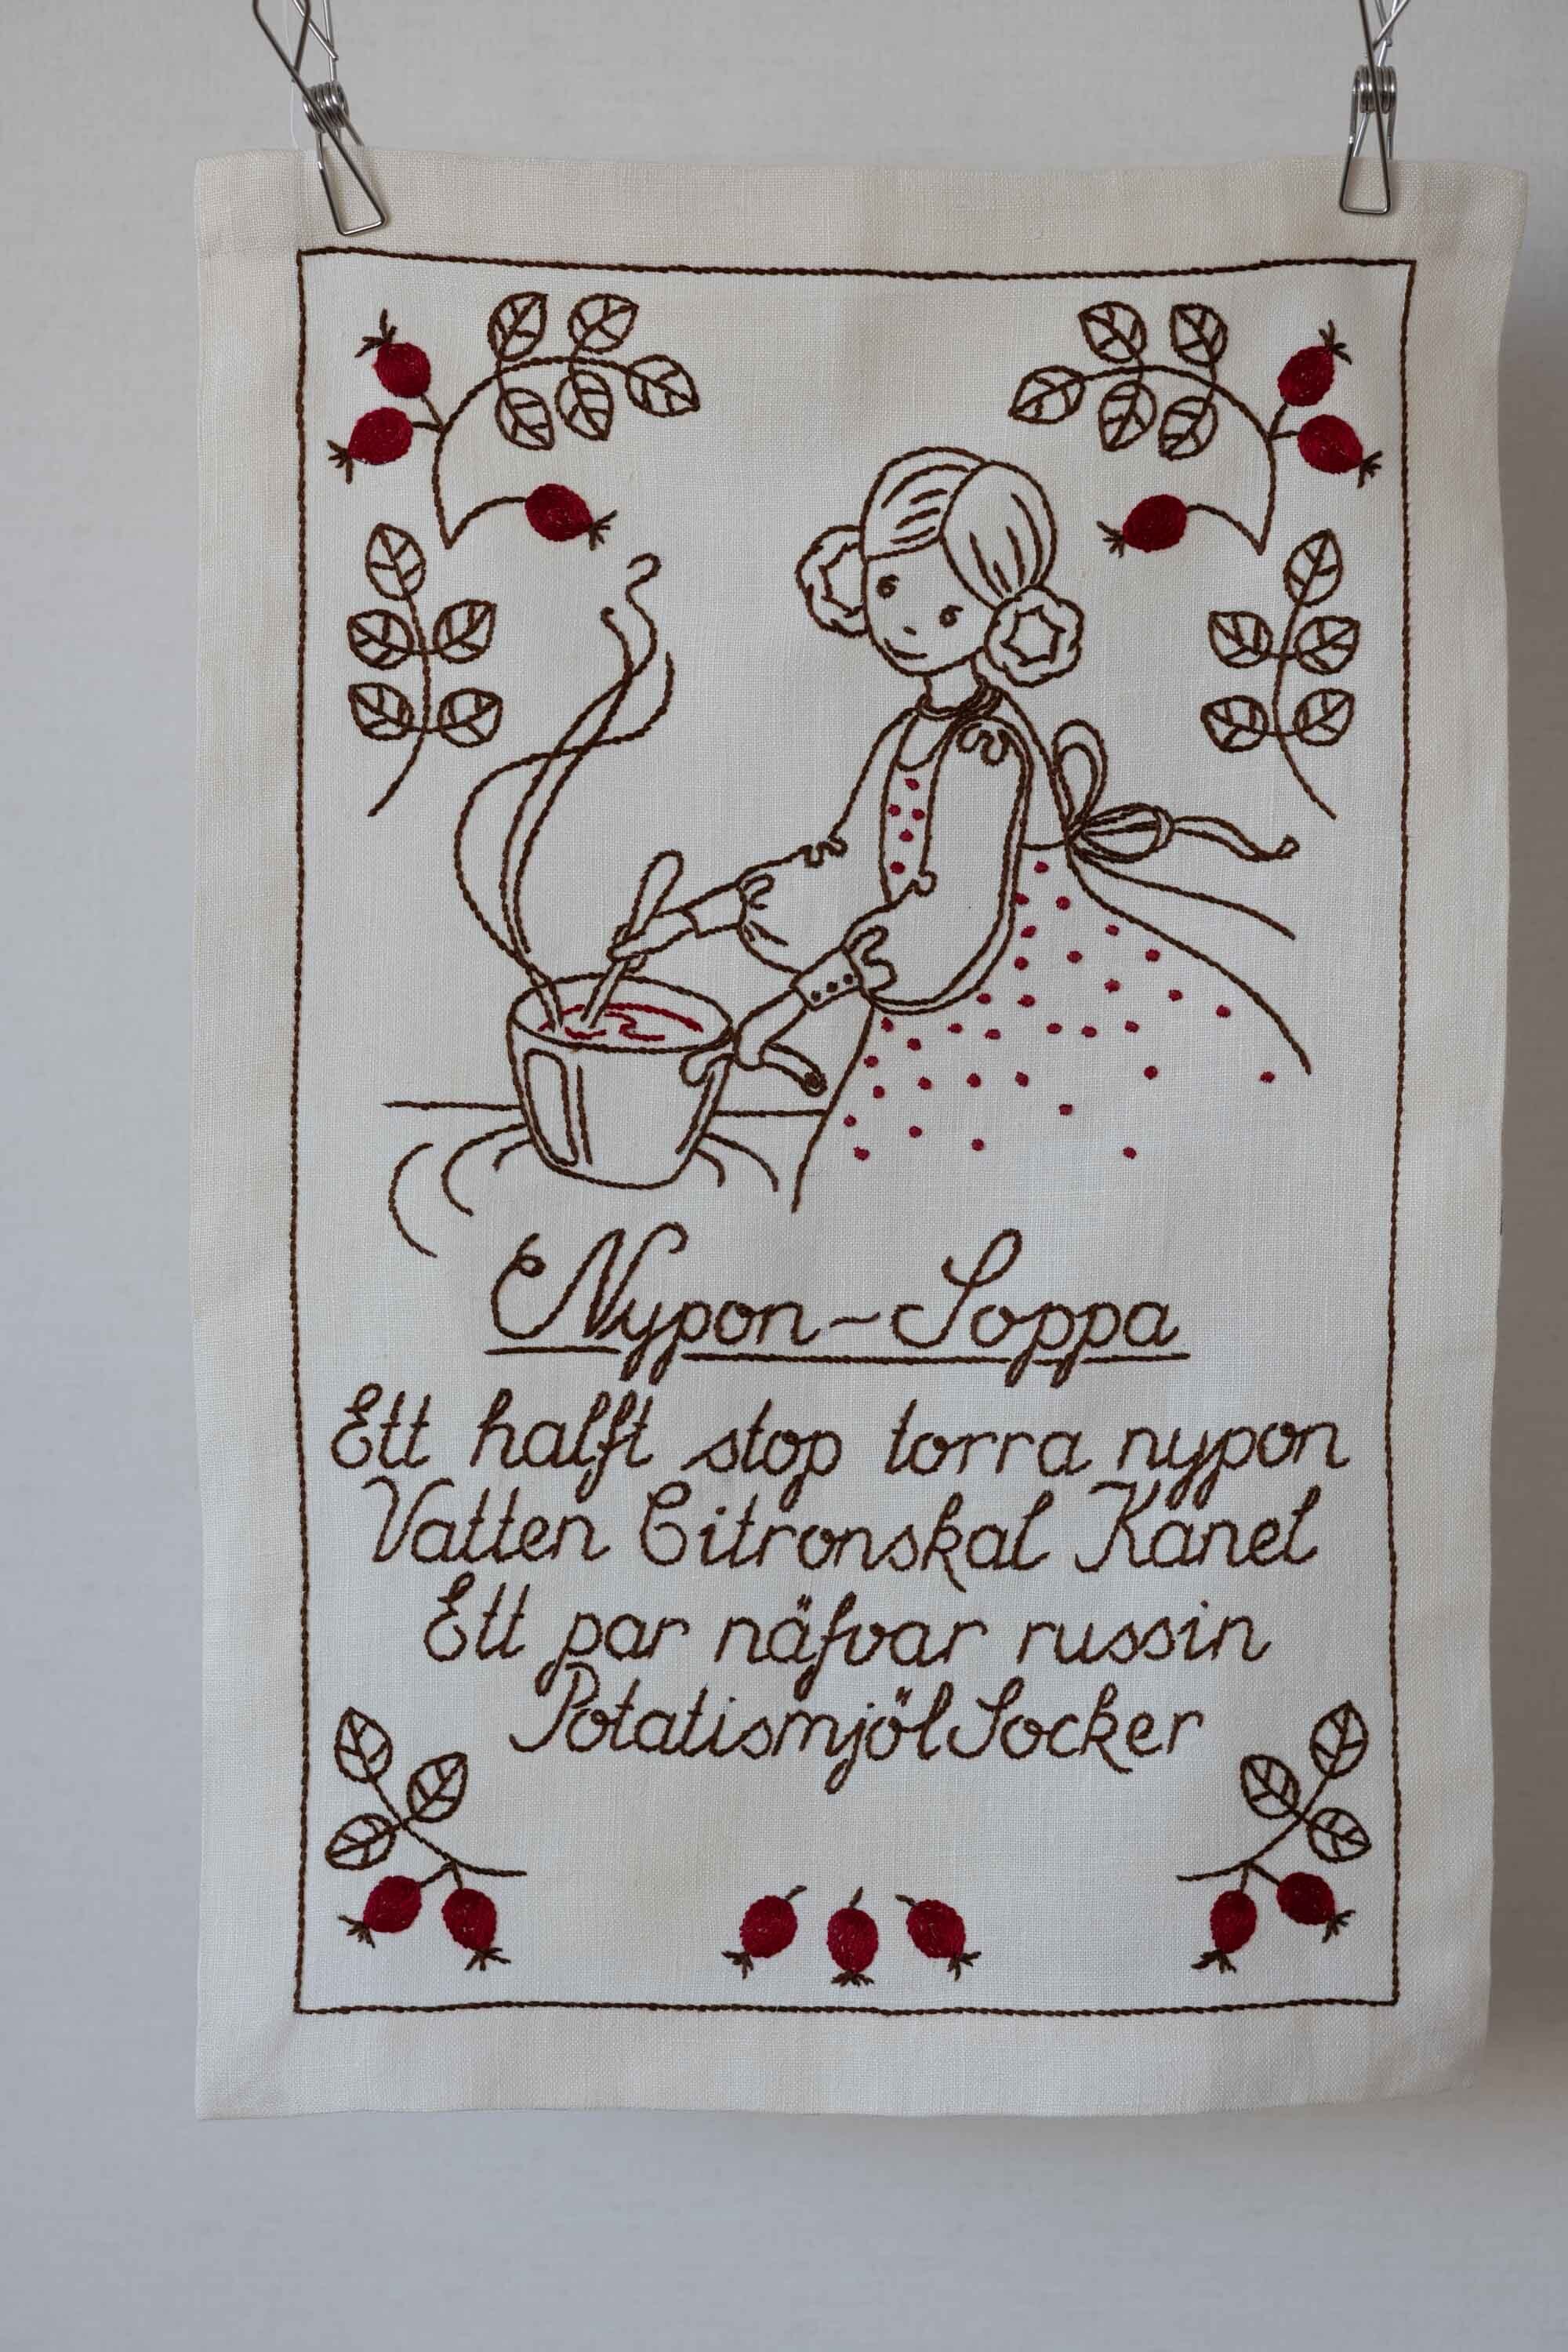 Nypon-Soppa
Ett halft stop torra nypon
Vatten Citronskal Kanel
Ett par näfvar russin
Potatismjöl Socker